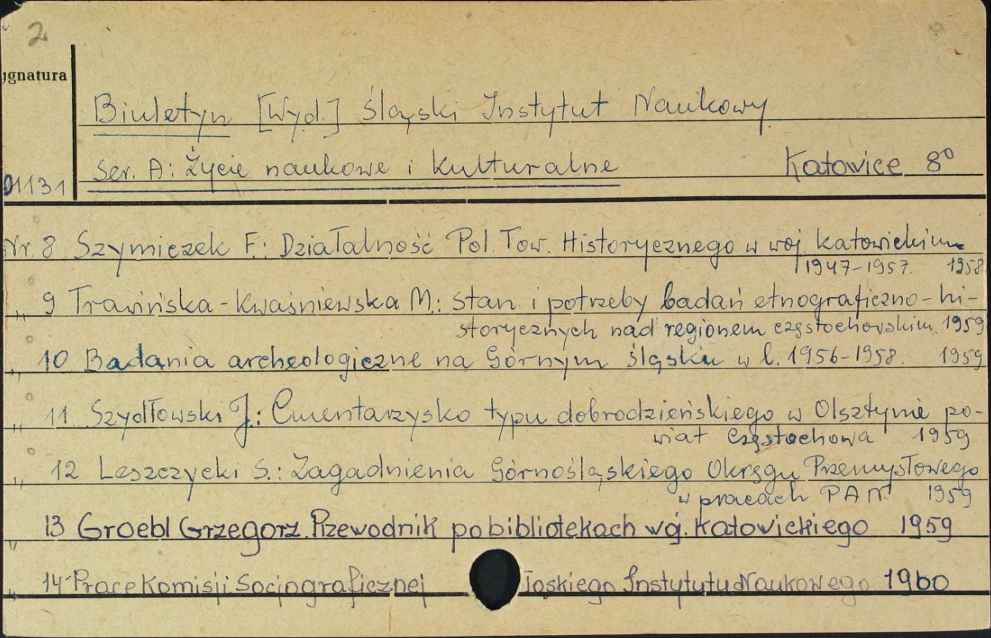 2
ygnatura
Biuletyn [Wyd.] Śląski Instytut Naukowy
Ser. A: Życie naukowe i kulturalne Katowice 8°
01131
Nr. 8 Szymiczek F.: Działalność Pol. Tow. Historycznego w woj. katowickim
1947-1957. 1958
„ 9 Trawińska-Kwaśniewska M.: Stan i potrzeby badań etnograficzno-hi-
storycznych nad regionem częstochowskim. 1959
„ 10 Badania archeologiczne na Górnym Śląsku w l. 1956-1958. 1959
„ 11 Szydłowski J.: Cmentarzysko typu dobrodzieńskiego w Olsztynie po-
wiat Częstochowa 1959
„ 12 Leszczycki S.: Zagadnienia Górnośląskiego Okręgu Przemysłowego
w pracach PAN 1959
„ 13 Groebl Grzegorz. Przewodnik po bibliotekach woj. katowickiego 1959
„ 14 Prace Komisji Socjograficznej ląskiego Instytutu Naukowego 1960